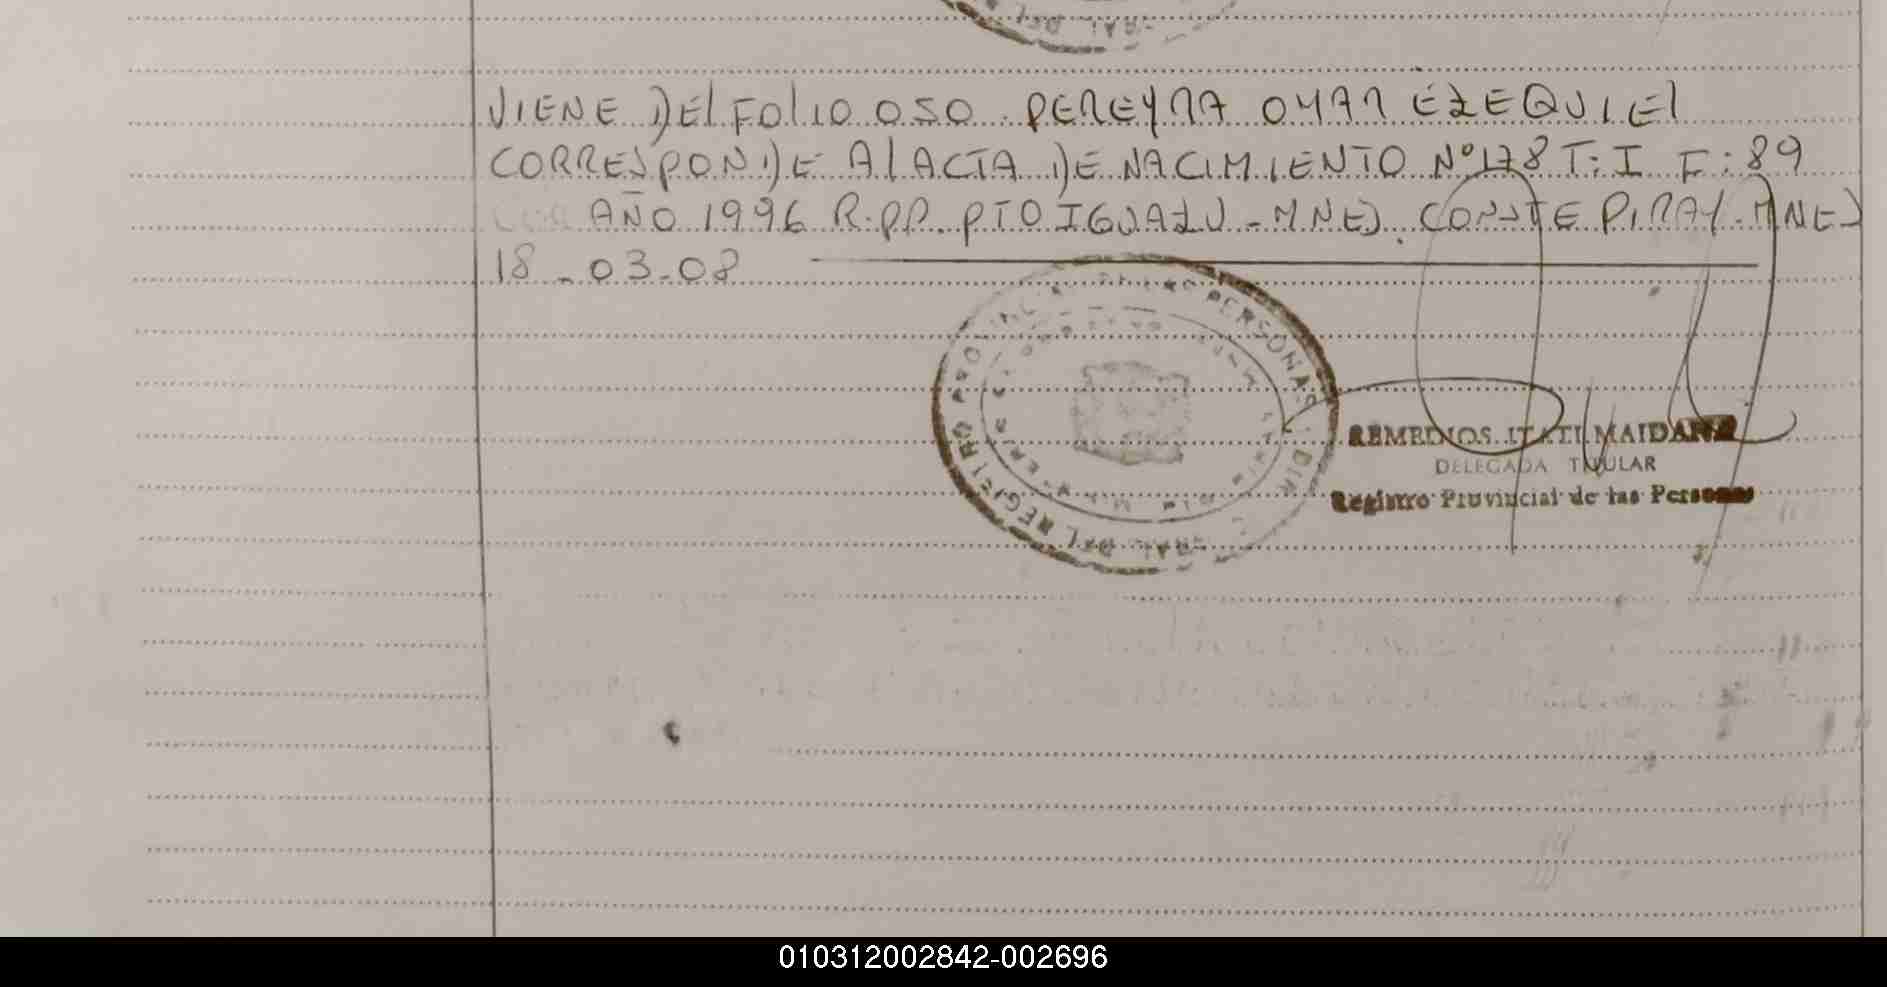 VIENE DEL FOLIO 050. PEREYRA OMAR EZEQUIEL
CORRESPONDE AL ACTA DE NACIMIENTO Nº 178 T: I F: 89
AÑO 1996 R.PP. PTO IGUAZU - MNES. CONSTE PIRAY - MNES
18 - 03 - 08
REGISTRO PROVINCIAL PERSONAS DIR RAL DEL
REMEDIOS ITATI MAIDANA
DELEGADA TITULAR
Registro Provincial de las Personas
010312002842-002696